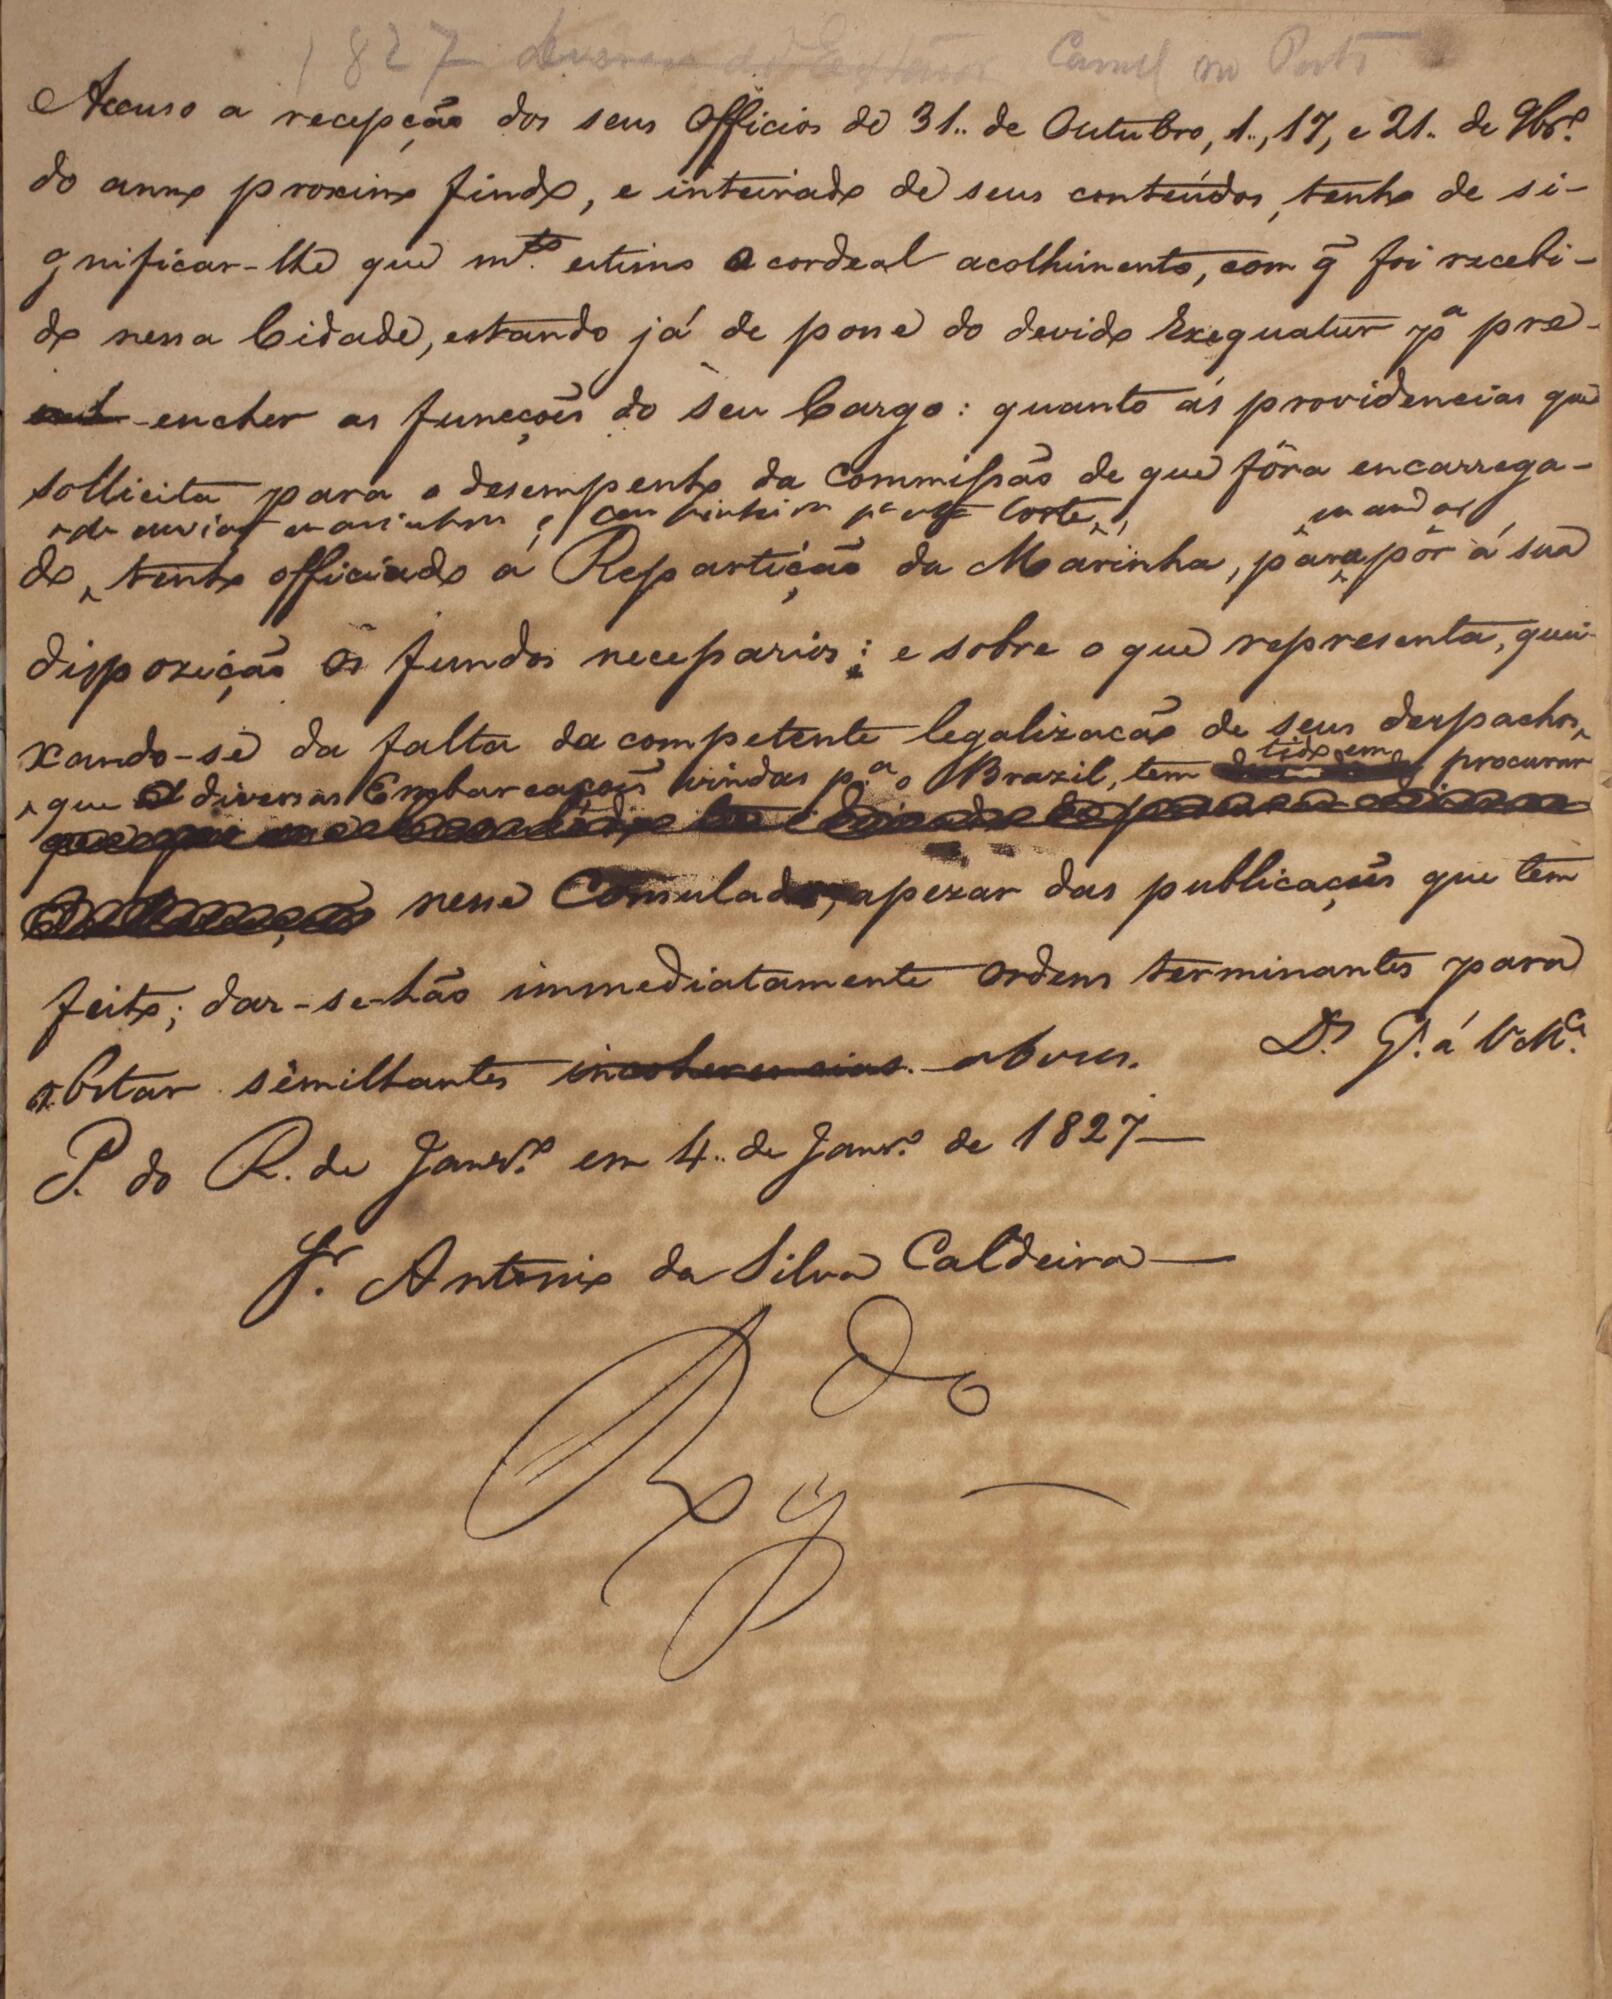 1827 Consul no Porto
Accuso a recepção dos seus Officios de 31.. de Outubro, 1.., 17, e 21.. de 9br.º
do anno proximo findo, e inteirado de seus conteúdos, tenho de si-
gnificar-lhe que m.to estimo o cordeal acolhimento, com q̃ foi recebi-
do nessa Cidade, estando já de posse do devido Exequatur pª pre-
-encher as funcções do seu Cargo: quanto ás providencias que
sollicita para o desempenho da Commissão de que fôra encarrega-
de enviar marinheiros e carpinteiros pª esta Corte, mandar
do, tenho officiado á Repartição da Marinha, para pôr á sua
dispozição os fundos necessarios: e sobre o que representa, quei-
xando-se da falta da competente legalização de seus despachos,
que diversas Embarcações vindas p.ª o Brazil, tem tido em procurar
nesse Consulado, apezar das publicações que tem
feito; dar-se-hão immediatamente ordens terminantes para
obstar similhantes incoherencias abusos. D.s G.e á V.M.ce
P. do R. de Janr.º em 4.. de Janr.º de 1827—
Sr. Antonio da Silva Caldeira—